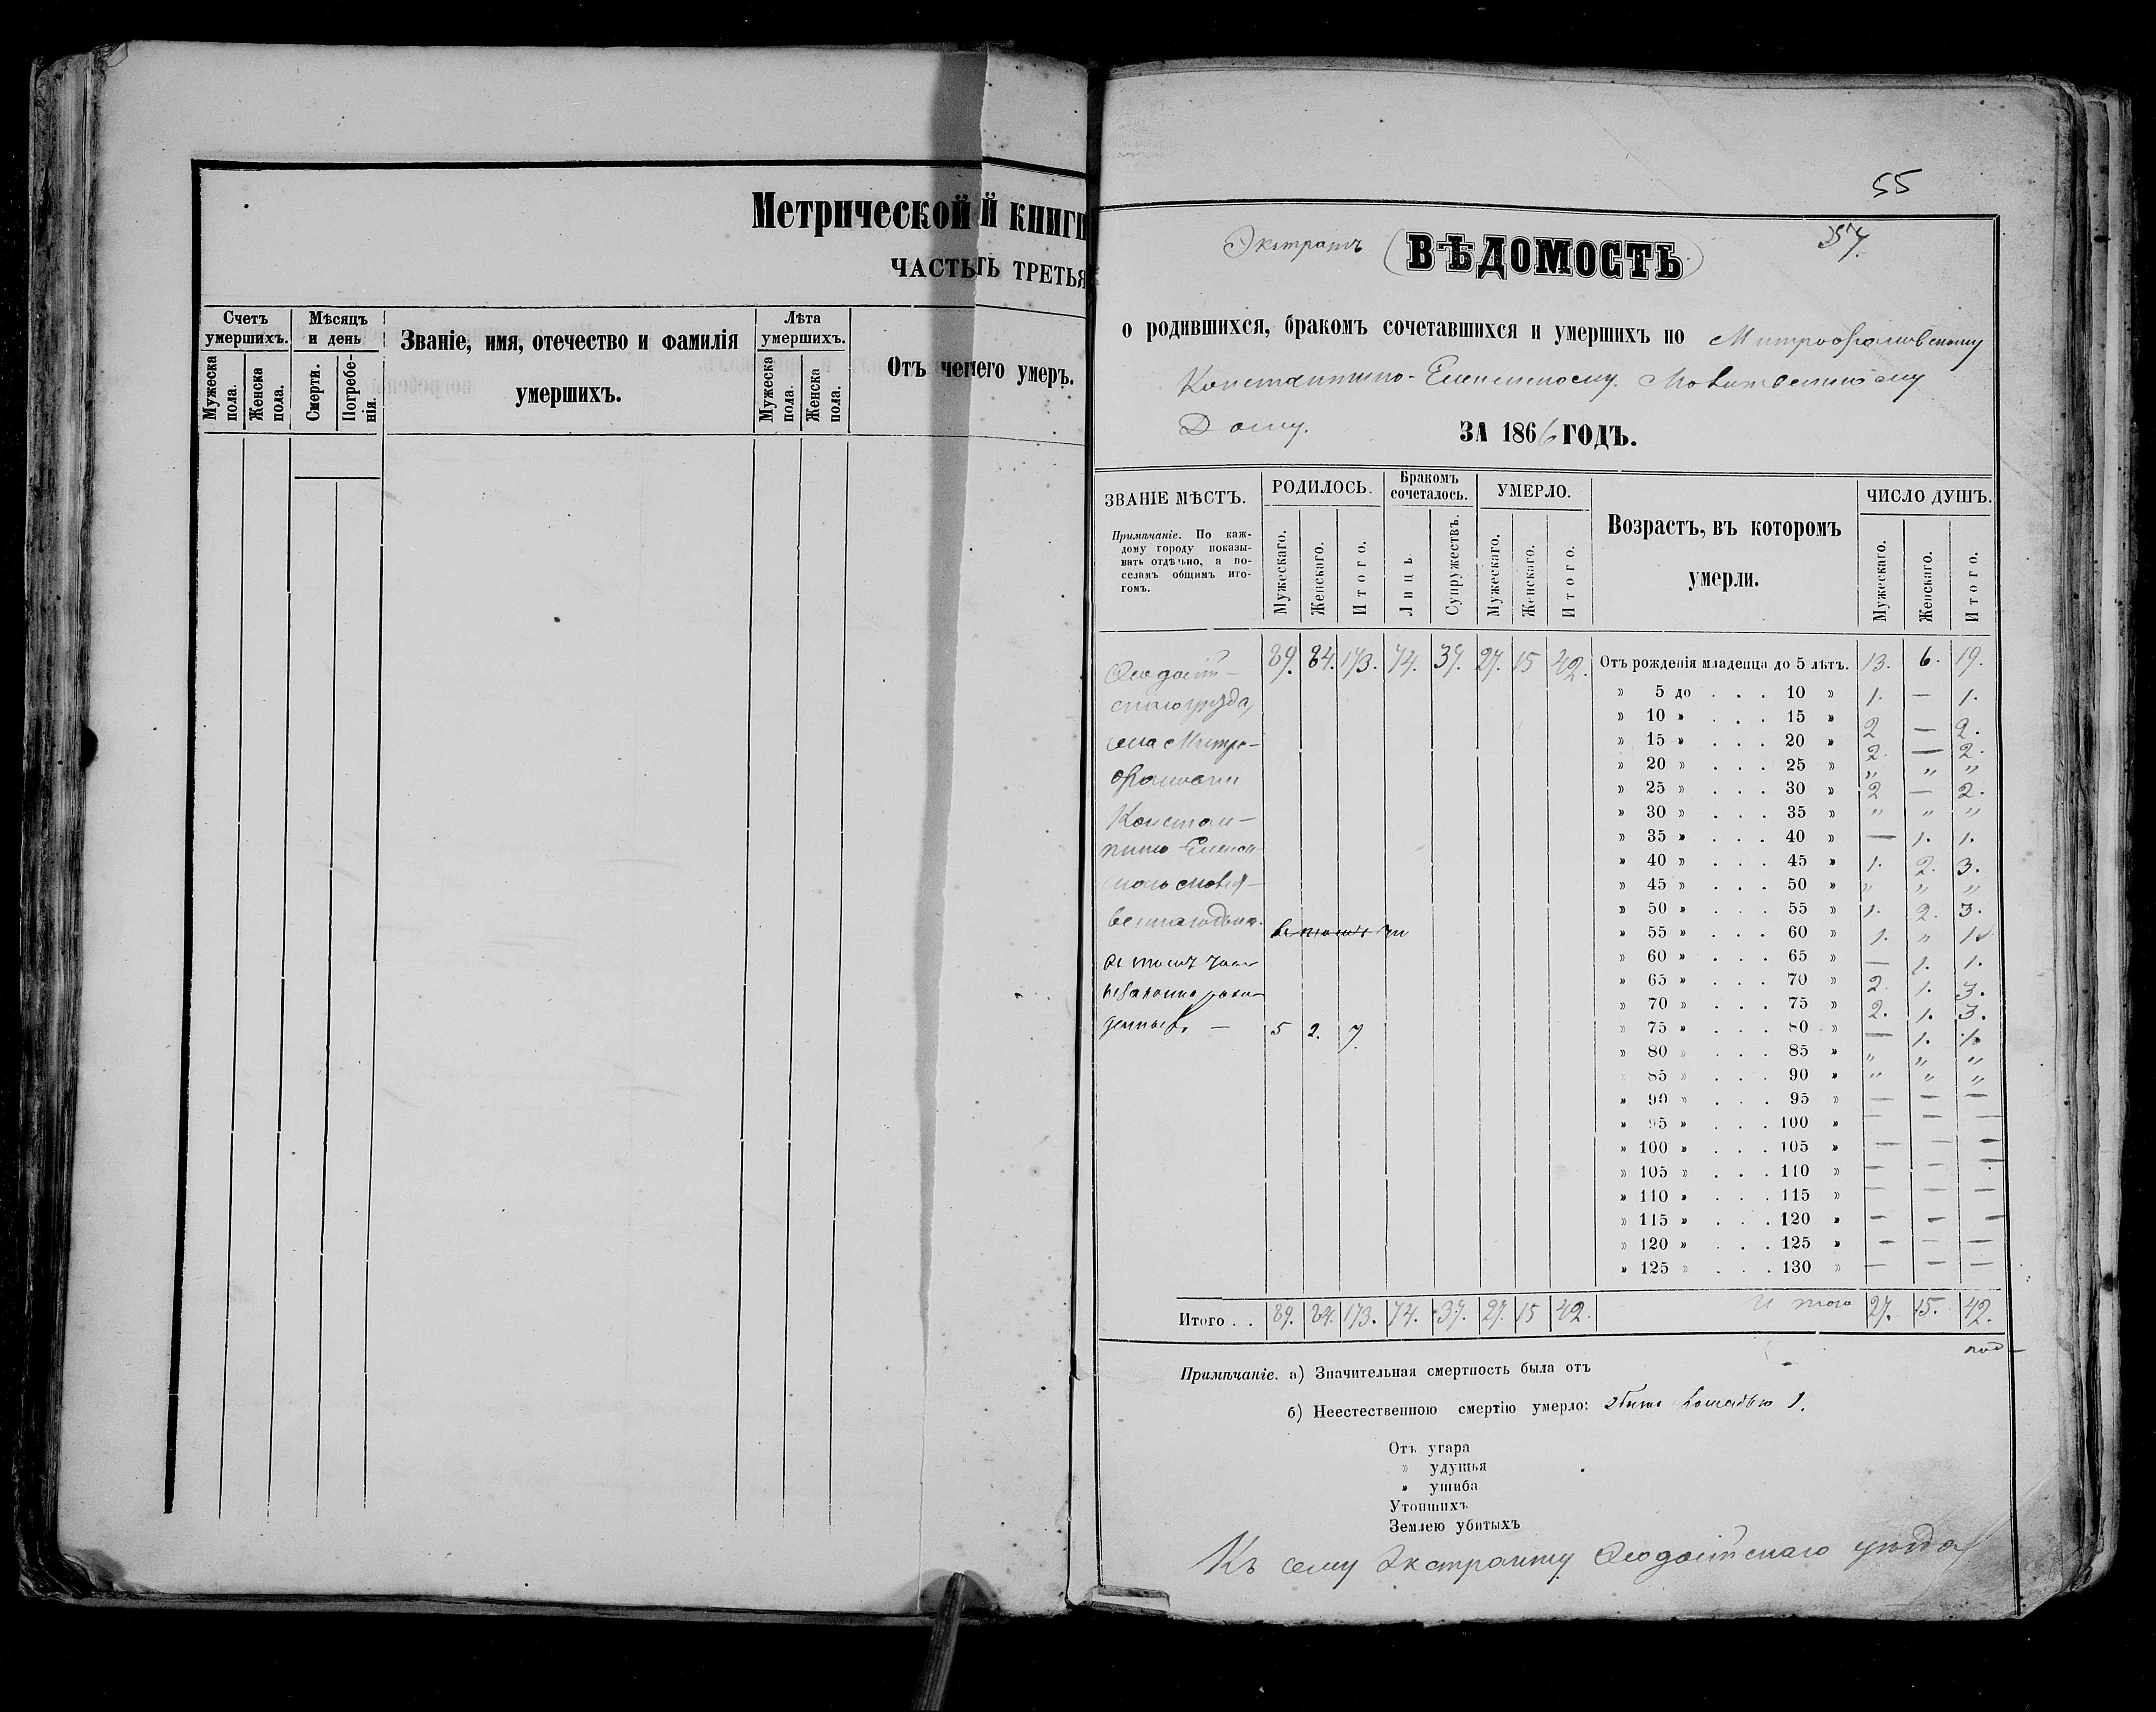 Метрической й книги
ЧАСТЬ ТЬ ТРЕТЬЯ
Счетъ умершихъ.
Мужеска пола.
Женска пола.
Мѣсяцъ и день
Смерти.
Погребенія.
Званіе, имя, отечество и фамилія
умершихъ.
Лѣта умершихъ.
Мужеска пола.
Женска пола.
Отъ чего умеръ.
55
Экстрактъ (ВѢДОМОСТЬ) 57.
о родившихся, бракомъ сочетавшихся и умершихъ по Митрофановскому
Константино-Еленинскому Молитвенному
Дому. ЗА 1866 ГОДЪ.
ЗВАНІЕ МѢСТЪ.
Примѣчаніе. По каж-
дому городу показы-
вать отдѣльно, а по-
селамъ общимъ ито-
гомъ.
РОДИЛОСЬ.
Мужескаго. Женскаго. Итого.
Бракомъ сочеталось.
Лицъ Супружествъ.
УМЕРЛО.
Мужескаго. Женскаго. Итого.
Возрастъ, въ которомъ
умерли.
ЧИСЛО ДУШЪ.
Мужескаго. Женскаго. Итого.
Ѳеодосій-
скаго уѣзда,
села Митро-
фановки
Констан-
тино-Еленин
скаго молит-
веннаго дома.
въ томъ чи
въ томъ числѣ
незаконнорож-
денныхъ. — 5 2. 7.
89. 84. 173. 74. 37. 27. 15 42.
Отъ рожденія младенца до 5 лѣтъ. 13. 6. 19.
» 5 до . . . 10 » 1. — 1.
» 10 » . . . 15 » 2 — 2.
» 15 » . . . 20 » 2. — 2.
» 20 » . . . 25 » „ „ „
» 25 » . . . 30 » 2 — 2.
» 30 » . . . 35 » „ „ „
» 35 » . . . 40 » — 1. 1.
» 40 » . . . 45 » 1. 2. 3.
» 45 » . . . 50 » „ „ „
» 50 » . . . 55 » 1. 2. 3.
» 55 » . . . 60 » 1. „ 1.
» 60 » . . . 65 » — 1. 1.
» 65 » . . . 70 » 2. 1. 3.
» 70 » . . . 75 » 2. 1. 3.
» 75 » . . . 80 » — 1. 1.
» 80 » . . . 85 » „ „ „
» 85 » . . . 90 » „ „ „
» 90 » . . . 95 » — — —
» 95 » . . . 100 » — — —
» 100 » . . . 105 » — — —
» 105 » . . . 110 » — — —
» 110 » . . . 115 » — — —
» 115 » . . . 120 » — — —
» 120 » . . . 125 » — — —
» 125 » . . . 130 » — — —
Итого . . 89. 84. 173. 74. 37. 27. 15 42. Итого 27. 15. 42.
Примѣчаніе. а) Значительная смертность была отъ -
б) Неестественною смертію умерло: убито лошадью 1.
Отъ угара
» удушья
» ушиба
Утопшихъ
Землею убитыхъ
Къ сему Экстракту Ѳеодосійскаго уѣзда